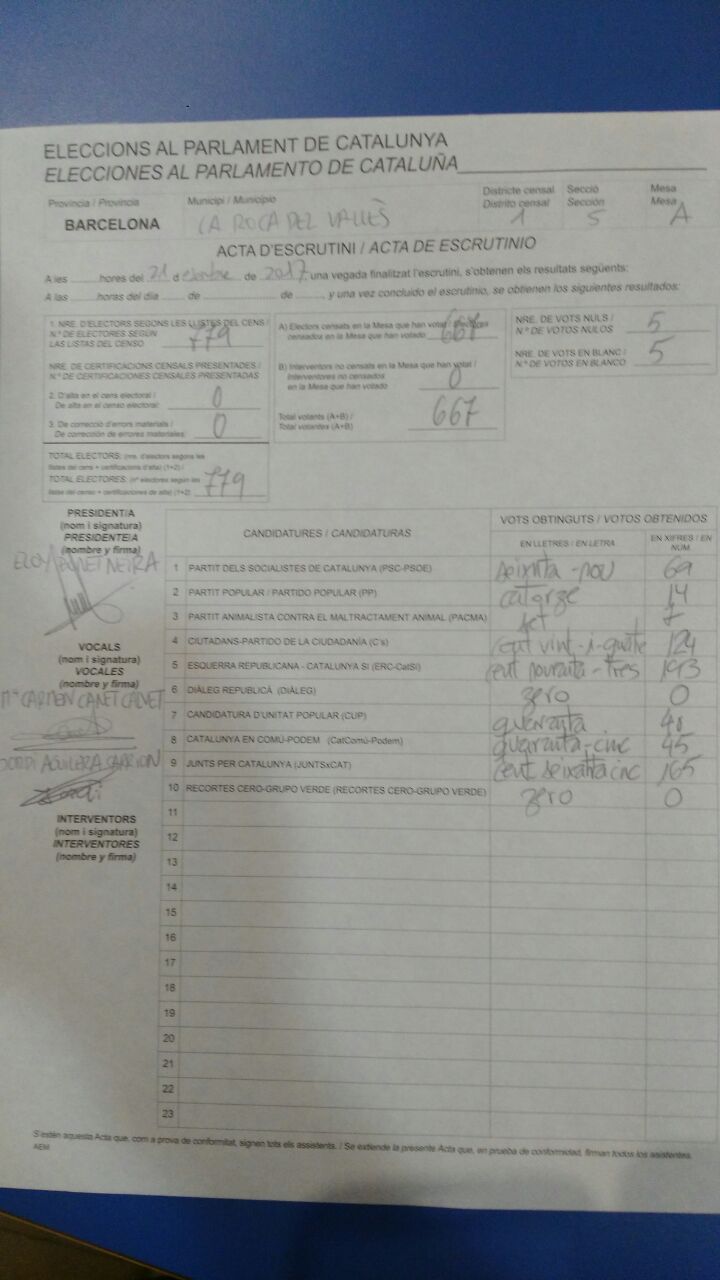 ELECCIONS AL PARLAMENT DE CATALUNYA
ELECCIONES AL PARLAMENTO DE CATALUÑA
Provincia / Provincia
BARCELONA
Municipi / Municipio
LA ROCA DEL VALLÈS
Districte censal
Distrito censal
1
Secció
Sección
5
Mesa
Mesa
A
ACTA D'ESCRUTINI / ACTA DE ESCRUTINIO
A les hores del 21 d de 2017, una vegada finalitzat l'escrutini, s'obtenen els resultats següents:
A las horas del día de de , y una vez concluido el escrutinio, se obtienen los siguientes resultados:
1. NRE. D'ELECTORS SEGONS LES LLISTES DEL CENS /
N.º DE ELECTORES SEGÚN
LAS LISTAS DEL CENSO
779
NRE. DE CERTIFICACIONS CENSALS PRESENTADES /
N.º DE CERTIFICACIONES CENSALES PRESENTADAS
2. D'alta en el cens electoral /
De alta en el censo electoral:
0
3. De correcció d'errors materials /
De corrección de errores materiales:
0
TOTAL ELECTORS: (nre. d'electors segons les
llistes del cens + certificacions d'alta) (1+2) /
TOTAL ELECTORES: (nº electores según las
listas del censo + certificaciones de alta) (1+2)
779
A) Electors censats en la Mesa que han votat /
censados en la Mesa que han votado
667
B) Interventors no censats en la Mesa que han votat /
Interventores no censados
en la Mesa que han votado
0
Total votants (A+B) /
Total votantes (A+B)
667
NRE. DE VOTS NULS /
N.º DE VOTOS NULOS
5
NRE. DE VOTS EN BLANC /
N.º DE VOTOS EN BLANCO
5
PRESIDENT/A
(nom i signatura)
PRESIDENTE/A
(nombre y firma)
ELOY NEIRA
VOCALS
(nom i signatura)
VOCALES
(nombre y firma)
Mª CARMEN CANET CALVET
JORDI AGUILERA CARRION
INTERVENTORS
(nom i signatura)
INTERVENTORES
(nombre y firma)
CANDIDATURES / CANDIDATURAS
VOTS OBTINGUTS / VOTOS OBTENIDOS
EN LLETRES / EN LETRA
EN XIFRES / EN NÚM.
1 PARTIT DELS SOCIALISTES DE CATALUNYA (PSC-PSOE) seixnta-nou 69
2 PARTIT POPULAR / PARTIDO POPULAR (PP) catorze 14
3 PARTIT ANIMALISTA CONTRA EL MALTRACTAMENT ANIMAL (PACMA) set 7
4 CIUTADANS-PARTIDO DE LA CIUDADANÍA (C's) cent vint-i-quatre 124
5 ESQUERRA REPUBLICANA - CATALUNYA SÍ (ERC-CatSí) cent noranta-tres 193
6 DIÀLEG REPUBLICÀ (DIÀLEG) zero 0
7 CANDIDATURA D'UNITAT POPULAR (CUP) quaranta 40
8 CATALUNYA EN COMÚ-PODEM (CatComú-Podem) quaranta-cinc 45
9 JUNTS PER CATALUNYA (JUNTSxCAT) cent seixanta cinc 165
10 RECORTES CERO-GRUPO VERDE (RECORTES CERO-GRUPO VERDE) zero 0
11
12
13
14
15
16
17
18
19
20
21
22
23
S'estén aquesta Acta que, com a prova de conformitat, signen tots els assistents. / Se extiende la presente Acta que, en prueba de conformidad, firman todos los asistentes.
AEM